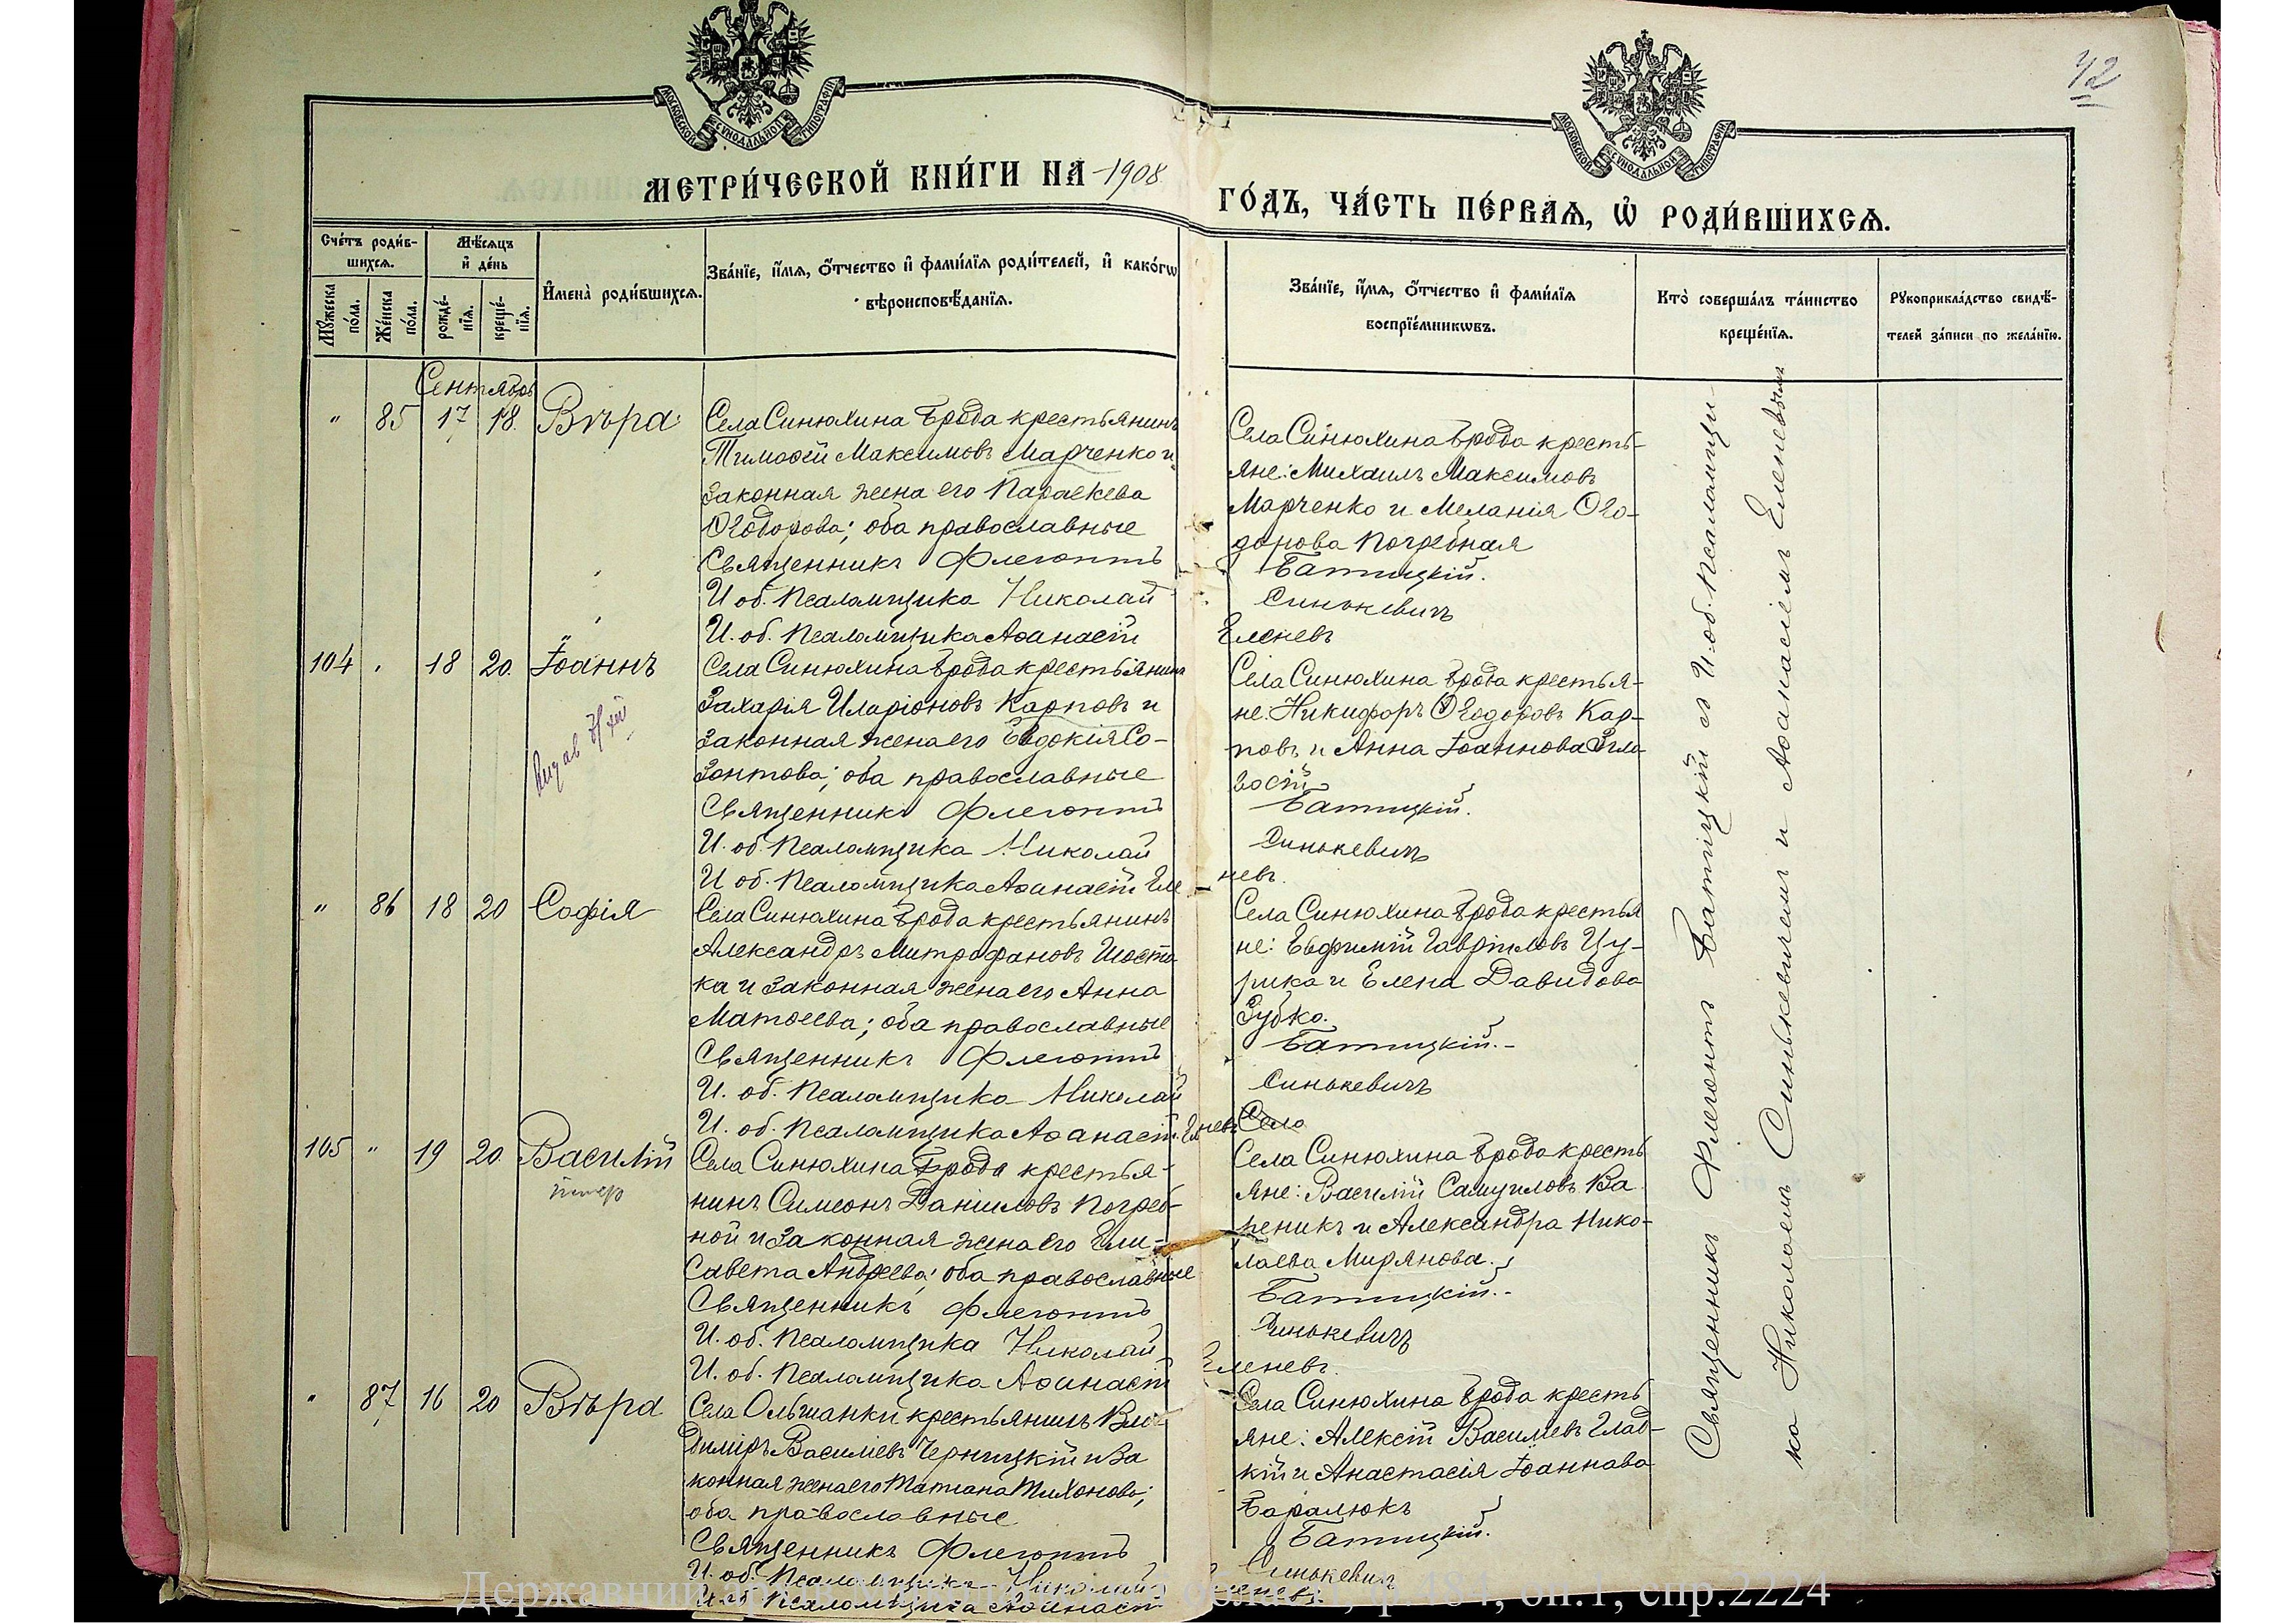 42
МОСКОВСКОЙ СѴНОДАЛЬНОЙ ТИПОГРАФІИ
МОСКОВСКОЙ СѴНОДАЛЬНОЙ ТИПОГРАФІИ
МЕТРИ́ЧЕСКОЙ КНИ́ГИ НА 1908
ГО́ДЪ, ЧА́СТЬ ПЕ́РВАѦ, Ѡ҆ РОДИ́ВШИХСѦ.
Сче́тъ роди́в-
шихсѧ.
Мꙋ́жеска
по́ла.
Же́нска
по́ла.
Мѣ́сѧцъ
и҆ де́нь
рожде́-
нїѧ.
креще́-
нїѧ.
И҆мена̀ роди́вшихсѧ.
Зва́нїе, и҆́мѧ, ѻ҆́тчество и҆ фами́лїѧ роди́телей, и҆ како́гѡ
вѣроисповѣ́данїѧ.
Зва́нїе, и҆́мѧ, ѻ҆́тчество и҆ фами́лїѧ
воспрїе́мникѡвъ.
Кто̀ соверша́лъ та́инство
креще́нїѧ.
Рꙋкоприкла́дство свидѣ́-
телей за́писи по жела́нїю.
Сентябрь
" 85 17 18. Вѣра
Села Синюхина Брода крестьянинъ
Тимоѳей Максимовъ Марченко и
законная жена его Параскева
Ѳеодорова; оба православные
Священникъ Флегонтъ
И об. псаломщика Николай
И. об. псаломщика Аѳанасій
Села Синюхина Брода кресть-
яне: Михаилъ Максимовъ
Марченко и Меланія Ѳео-
дорова Погребная
Батицкій.
Синькевичъ
Еленевъ
104 " 18 20. Іоаннъ
Села Синюхина Брода крестьянинъ
Захарія Иларіоновъ Карповъ и
законная жена его Евдокія Со-
зонтова; оба православные
Священникъ Флегонтъ
И. об. псаломщика Николай
И об. псаломщика Аѳанасій Еле
Села Синюхина Брода крестья-
не: Никифоръ Ѳеодоровъ Кар-
повъ и Анна Іоаннова
Батицкій.
Синькевичъ
невъ.
" 86 18 20 Софія
Села Синюхина Брода крестьянинъ
Александръ Митрофановъ Шоста-
ка и законная жена его Анна
Матѳеева; оба православные
Священникъ Флегонтъ
И. об. псаломщика Николай
И. об. псаломщика Аѳанасій Еленевъ
Села Синюхина Брода крестья
не: Евфимій Гавріиловъ Цу-
рика и Елена Давидова
Зубко.
Батицкій.
Синькевичъ
Села
105 " 19 20. Василій
Села Синюхина Брода крестья-
нинъ Симеонъ Даниловъ Погреб-
ной и законная жена его Ели-
савета Андреева; оба православные
Священникъ Флегонтъ
И. об. псаломщика Николай
И. об. псаломщика Аѳанасій
Села Синюхина Брода кресть
яне: Василій Самуиловъ Ва
реникъ и Александра Нико-
лаева Мирянова.
Батицкій.
Синькевичъ
Еленевъ.
" 87 16 20 Вѣра
Села Ольшанки крестьянинъ Вла
диміръ Василіевъ Черницкій и за
конная жена его Татіана Тихонова;
оба православные
Священникъ Флегонтъ
И. об. псаломщика Николай
И об. псаломщика Аѳанасій
Села Синюхина Брода кресть
яне: Алексій Василіевъ Глад-
кій и Анастасія Іоаннова
Баралюкъ
Батицкій.
Синькевичъ
Еленевъ.
Священникъ Флегонтъ Батицкій съ И. об. псаломщи-
ка Николаемъ Синькевичемъ и Аѳанасіемъ Еленевымъ
Державний архів області, оп.1, спр.2224